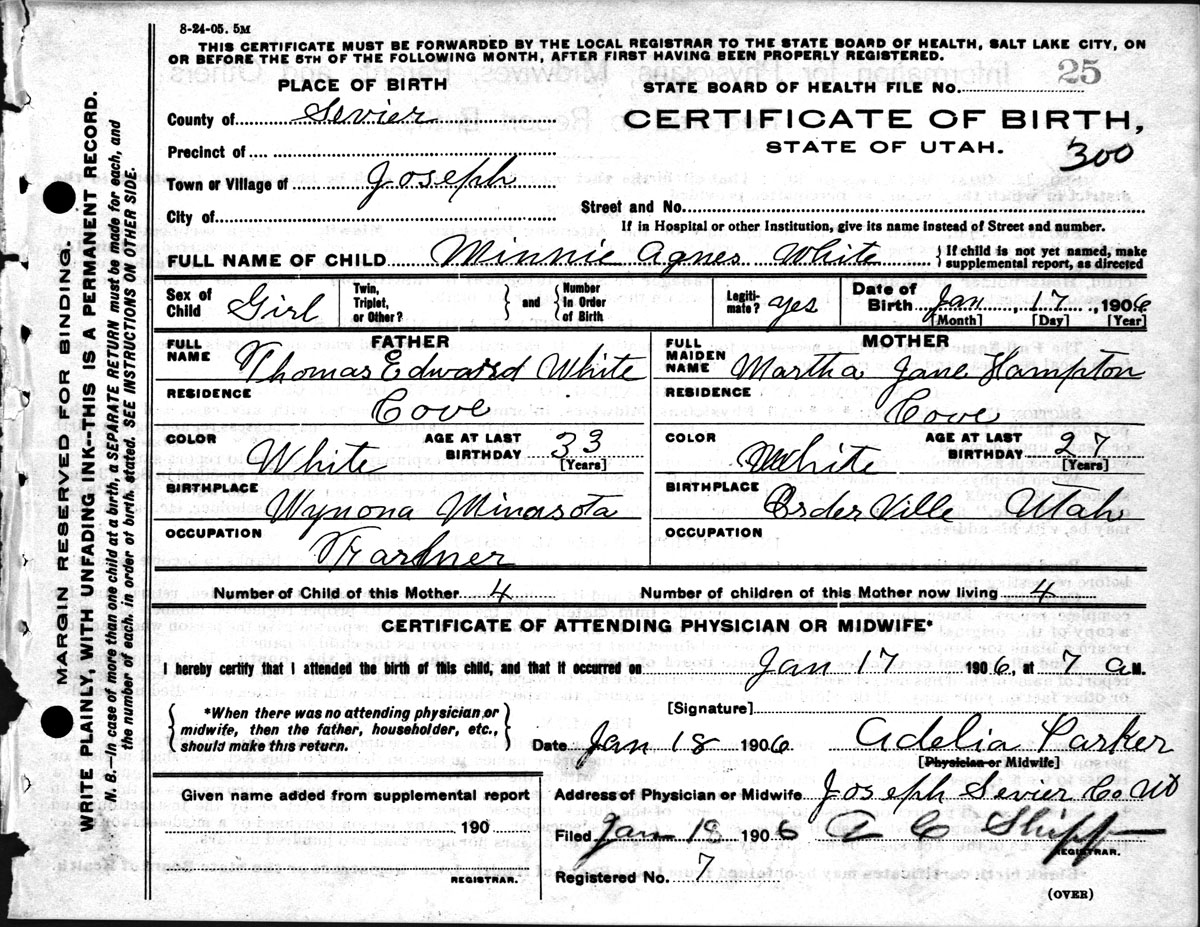 8-24-05. 5M
THIS CERTIFICATE MUST BE FORWARDED BY THE LOCAL REGISTRAR TO THE STATE BOARD OF HEALTH, SALT LAKE CITY, ON
OR BEFORE THE 5TH OF THE FOLLOWING MONTH, AFTER FIRST HAVING BEEN PROPERLY REGISTERED.
MARGIN RESERVED FOR BINDING.
WRITE PLAINLY, WITH UNFADING INK--THIS IS A PERMANENT RECORD.
N. B.—In case of more than one child at a birth, a SEPARATE RETURN must be made for each, and
the number of each, in order of birth, stated. SEE INSTRUCTIONS ON OTHER SIDE.
PLACE OF BIRTH
STATE BOARD OF HEALTH FILE No. 25
County of Sevier
CERTIFICATE OF BIRTH,
STATE OF UTAH.
300
Precinct of
Town or Village of Joseph
City of
Street and No.
If in Hospital or other Institution, give its name instead of Street and number.
FULL NAME OF CHILD Minnie Agnes White { If child is not yet named, make
supplemental report, as directed
Sex of Child Girl Twin, Triplet, or Other? } and { Number in Order of Birth Legiti-mate? yes Date of Birth Jan, 17, 1906
[Month] [Day] [Year]
FATHER
FULL NAME Thomas Edward White
RESIDENCE Cove
COLOR White AGE AT LAST BIRTHDAY 33 [Years]
BIRTHPLACE Wynona Minasota
OCCUPATION
MOTHER
FULL MAIDEN NAME Martha Jane Hampton
RESIDENCE Cove
COLOR White AGE AT LAST BIRTHDAY 27 [Years]
BIRTHPLACE Order Ville Utah
OCCUPATION
Number of Child of this Mother 4 Number of children of this Mother now living 4
CERTIFICATE OF ATTENDING PHYSICIAN OR MIDWIFE*
I hereby certify that I attended the birth of this child, and that it occurred on Jan 17 1906, at 7 a M.
{ *When there was no attending physician or
midwife, then the father, householder, etc.,
should make this return. }
[Signature]
Date Jan 18 1906 Adelia Parker
[Physician or Midwife]
Given name added from supplemental report
190
REGISTRAR.
Address of Physician or Midwife Joseph Sevier Co Ut
Filed Jan 18 1906 A C Shipp
REGISTRAR.
Registered No. 7
(OVER)